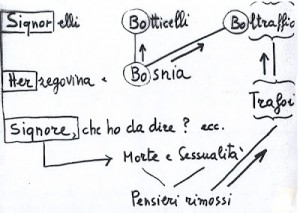 Signor elli Botticelli Boltraffio
Herzegovina e Bosnia
Trafoi
Signore, che ho da dire ? ecc.
Morte e Sessualità
Pensieri rimossi